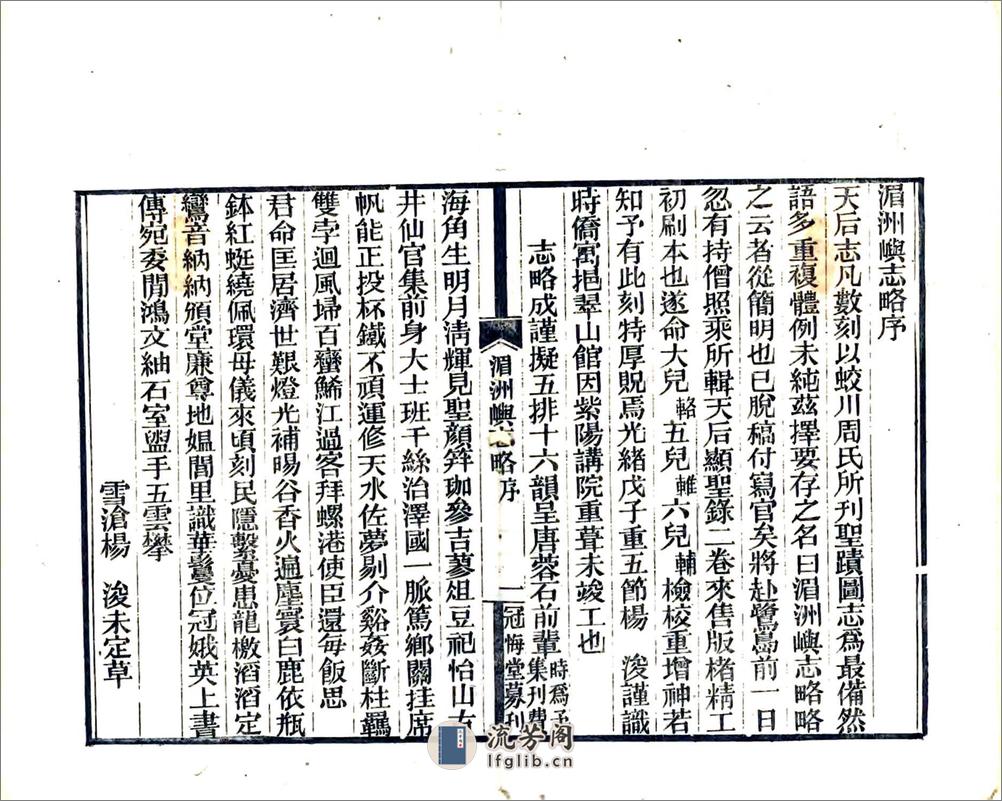 湄洲嶼志略序
天后志凡數刻以蛟川周氏所刊聖蹟圖志爲最備然
語多重複體例未純茲擇要存之名曰湄洲嶼志略略
之云者從簡明也已脫稿付寫官矣將赴鷺島前一日
忽有持僧照乘所輯天后顯聖錄二卷來售版楮精工
初刷本也遂命大兒輅五兒雗六兒輔檢校重增神若
知予有此刻特厚貺焉光緒戊子重五節楊浚謹識
時僑寓挹翠山館因紫陽講院重葺未竣工也
志略成謹擬五排十六韻呈唐蓉石前輩時爲予集刊費
湄洲嶼志略序
一
冠悔堂募刊
海角生明月清輝見聖顏笄珈參吉蓼俎豆祀怡山古
井仙官集前身大士班千絲治澤國一脈篤鄉關挂席
帆能正投杯鐵不頑運修天水佐夢剔介谿姦斷柱驫
雙孛迴風埽百蠻鯑江過客拜螺港使臣還每飯思
君命匡居濟世艱燈光補暘谷香火遍塵寰白鹿依瓶
鉢紅蜓繞佩環母儀來頃刻民隱繫憂患龍檄滔滔定
鸞音納納頒堂廉尊地媼閭里識華鬘位冠娥英上書
傳宛委閒鴻文紬石室盥手五雲攀
雪滄楊浚未定草
流芳阁
lfglib.cn